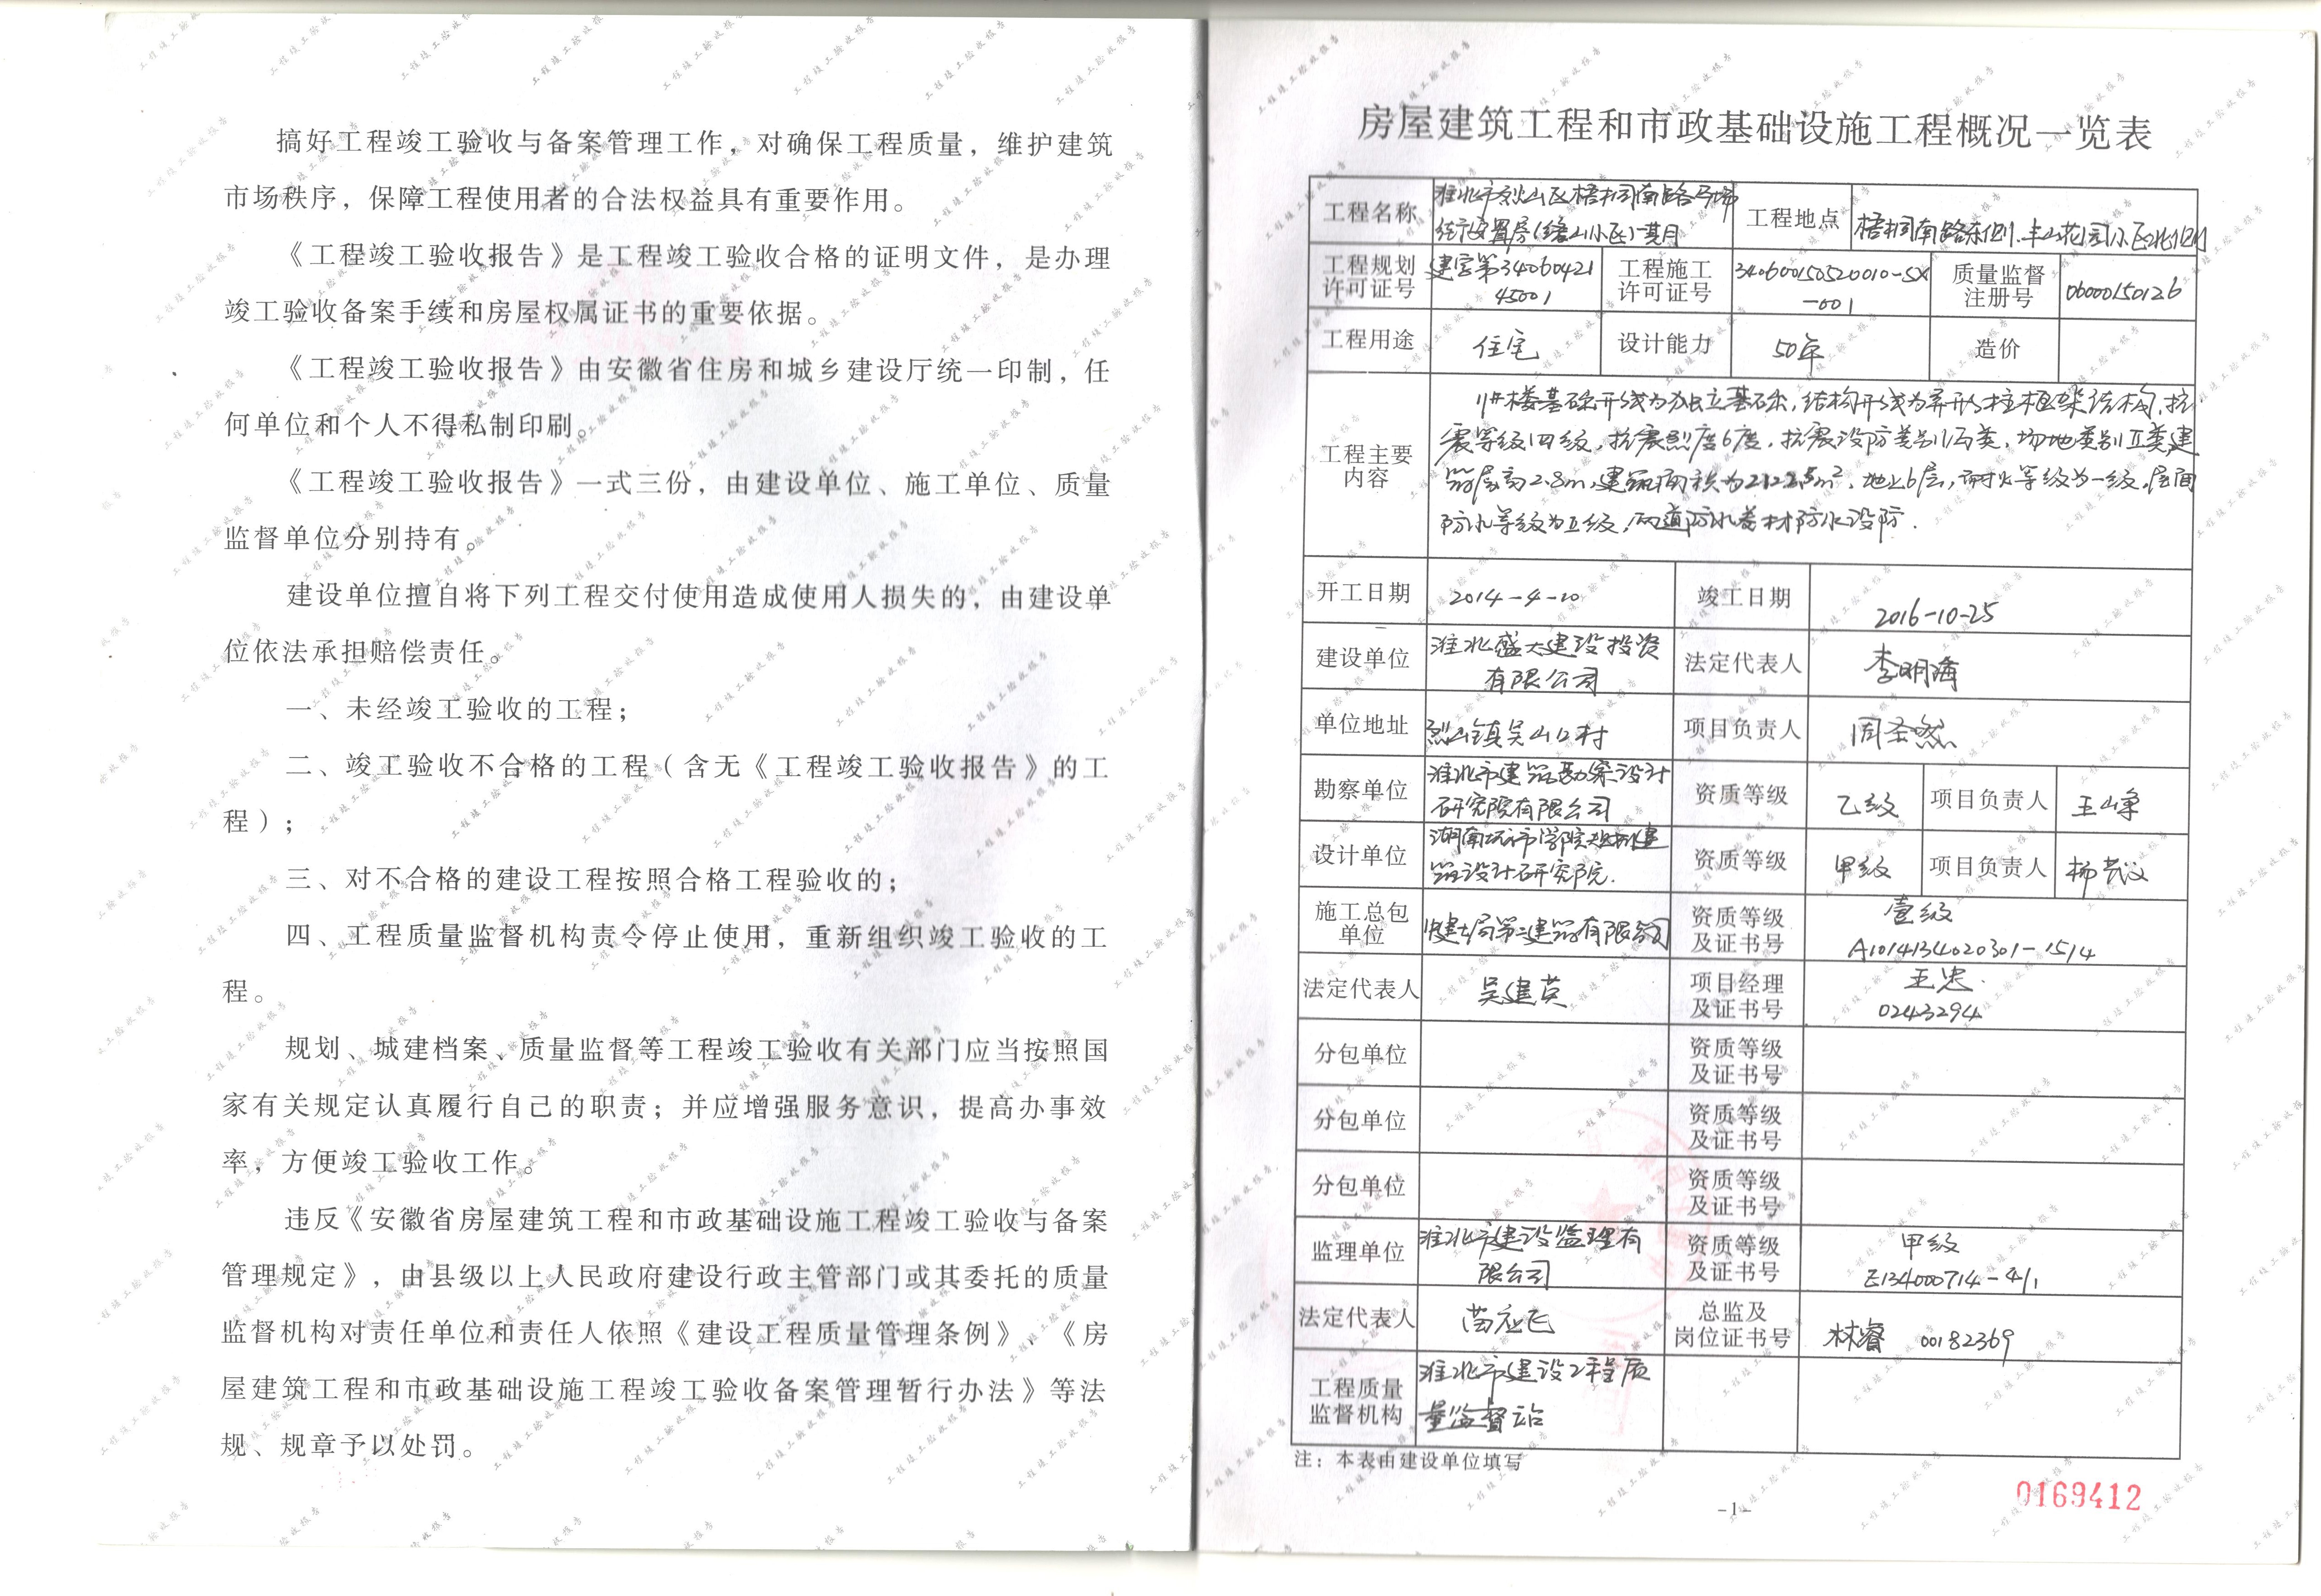 搞好工程竣工验收与备案管理工作，对确保工程质量，维护建筑
市场秩序，保障工程使用者的合法权益具有重要作用。
《工程竣工验收报告》是工程竣工验收合格的证明文件，是办理
竣工验收备案手续和房屋权属证书的重要依据。
《工程竣工验收报告》由安徽省住房和城乡建设厅统一印制，任
何单位和个人不得私制印刷。
《工程竣工验收报告》一式三份，由建设单位、施工单位、质量
监督单位分别持有。
建设单位擅自将下列工程交付使用造成使用人损失的，由建设单
位依法承担赔偿责任。
一、未经竣工验收的工程；
二、竣工验收不合格的工程（含无《工程竣工验收报告》的工
程）；
三、对不合格的建设工程按照合格工程验收的；
四、工程质量监督机构责令停止使用，重新组织竣工验收的工
程。
规划、城建档案、质量监督等工程竣工验收有关部门应当按照国
家有关规定认真履行自己的职责；并应增强服务意识，提高办事效
率，方便竣工验收工作。
违反《安徽省房屋建筑工程和市政基础设施工程竣工验收与备案
管理规定》，由县级以上人民政府建设行政主管部门或其委托的质量
监督机构对责任单位和责任人依照《建设工程质量管理条例》、《房
屋建筑工程和市政基础设施工程竣工验收备案管理暂行办法》等法
规、规章予以处罚。
房屋建筑工程和市政基础设施工程概况一览表
工程名称 淮北市烈山区梧桐南路 安置房 工程地点 梧桐南路东侧 花园小区北侧
工程规划许可证号 34060421 45001 工程施工许可证号 340600150520010-SX-001 质量监督注册号 0600015012б
工程用途 住宅 设计能力 50年 造价
工程主要内容 1#楼基础形式为独立基础，结构形式为异形柱框架结构，抗
震等级四级，抗震烈度6度，抗震设防类别丙类，场地类别Ⅱ类，建
筑层高2.8m，建筑面积为 m²，地上6层，耐火等级为一级，屋面
防水等级为Ⅱ级，两道防水卷材防水设防.
开工日期 2014-4-10 竣工日期 2016-10-25
建设单位 淮北盛大建设投资有限公司 法定代表人 李明海
单位地址 烈山镇吴山口村 项目负责人 周圣然
勘察单位 淮北市建筑勘察设计研究院有限公司 资质等级 乙级 项目负责人 王
设计单位 湖南城市学院规划建筑设计研究院. 资质等级 甲级 项目负责人 杨
施工总包单位 局第二建筑有限公司 资质等级及证书号 壹级 A1014134020301-15/4
法定代表人 吴建英 项目经理及证书号 王忠 0243294
分包单位 资质等级及证书号
分包单位 资质等级及证书号
分包单位 资质等级及证书号
监理单位 淮北市建设监理有限公司 资质等级及证书号 甲级 E134000714-4/1
法定代表人 苗应飞 总监及岗位证书号 林睿 00182369
工程质量监督机构 淮北市建设工程质量监督站
注：本表由建设单位填写
-1-
0169412